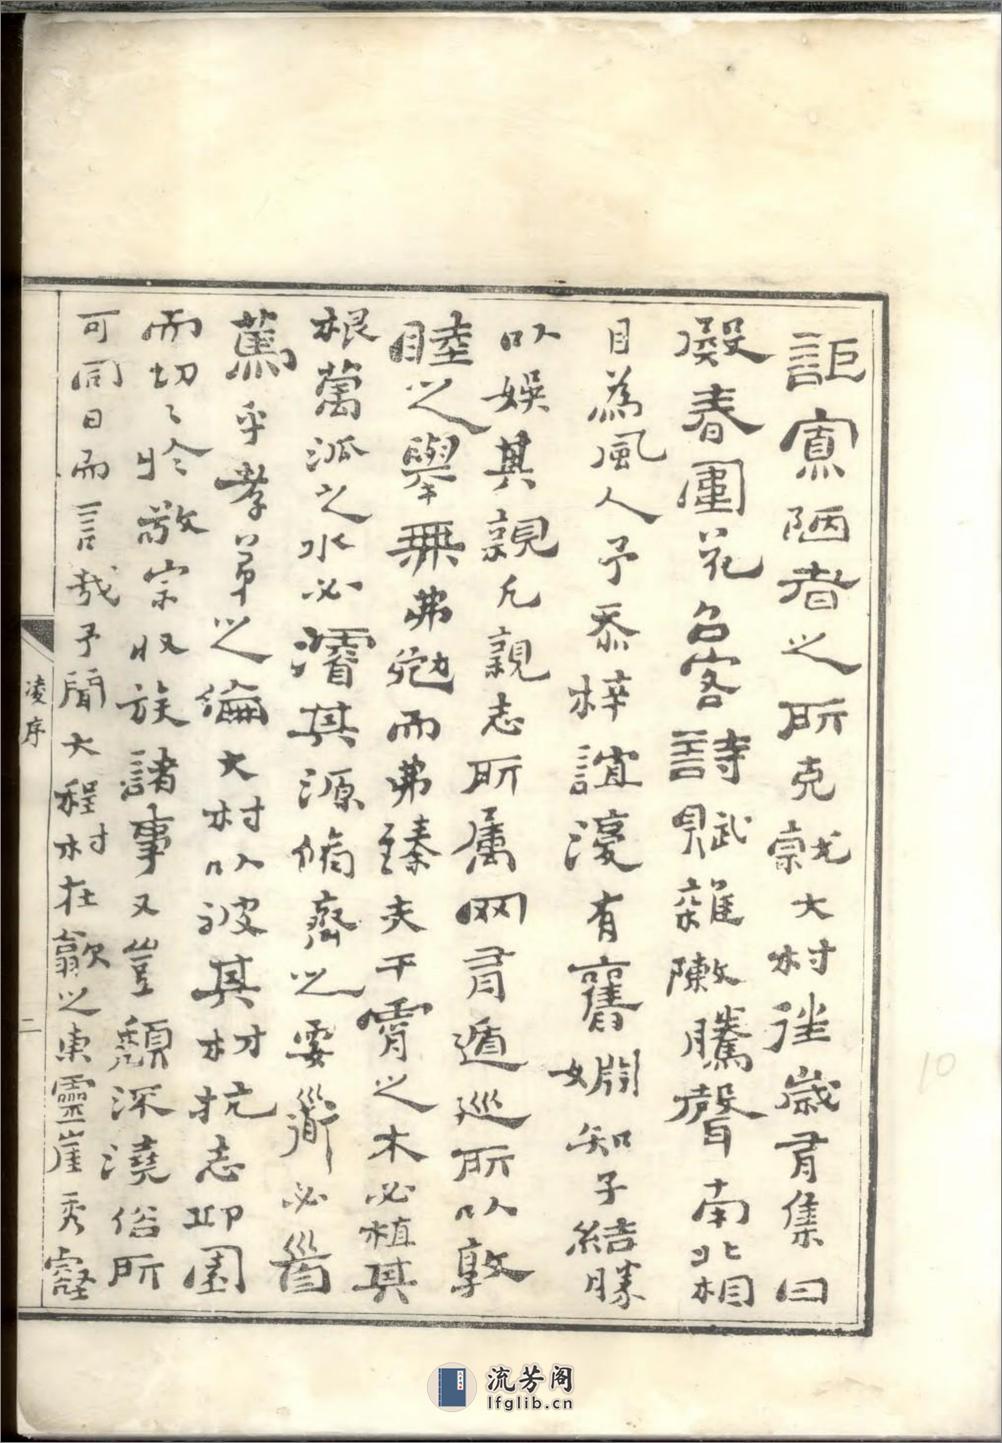 詎寡陋者之所克就大村往歲有集曰
凝春園花召客詩賦雜陳騰聲南北相
目為風人予忝梓誼濅有舊姻知子結勝
以娛其親凡親志所属网有遁巡所以敦
睦之舉無弗勉而弗臻夫干霄之木必植其
根萬派之水必濬其源脩齊之要道必首
篤乎孝弟之倫大村以彼其材抗志卬園
而切〻於敬宗收族諸事又豈頹深澆俗所
可同日而言哉予聞大程村在歙之東靈崖秀
凌序
二
10
流芳阁
lfglib.cn